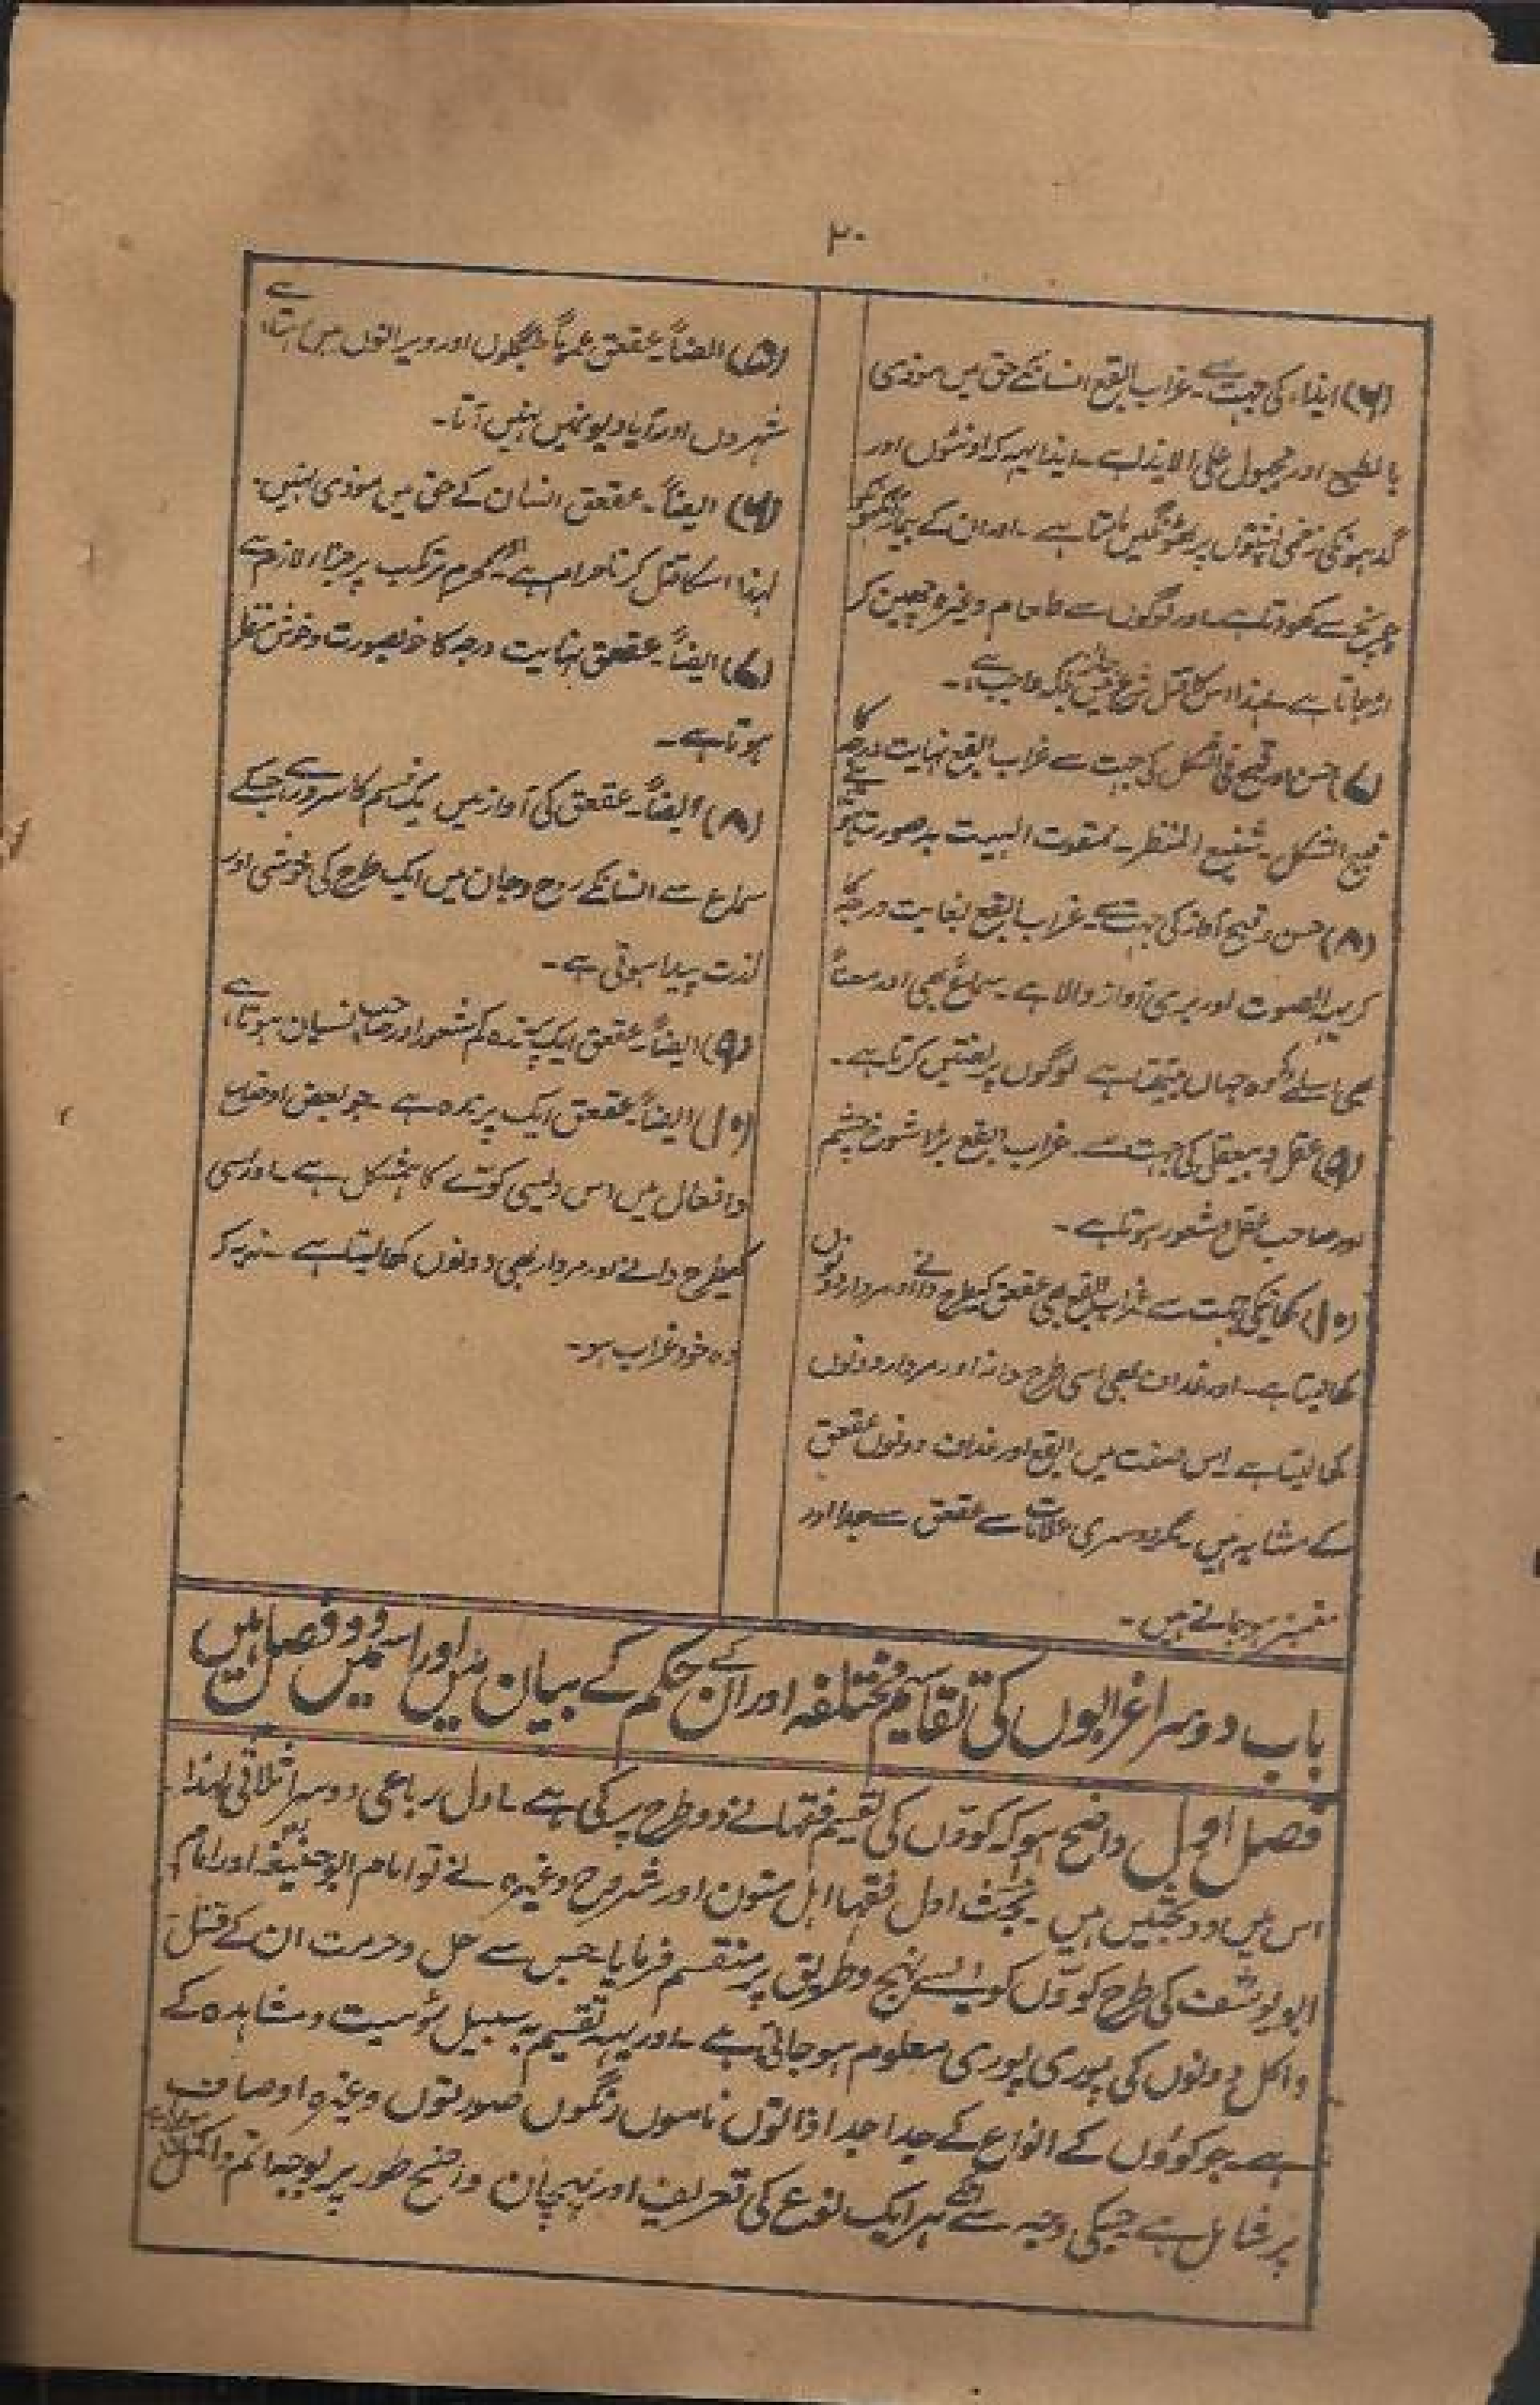 ۲۰
(۶) ایذاء کی جہت سے۔ غراب ابقع انسانکے حق میں موذی
بالطبع اور مجبول علی الایذاء ہے۔ ایذا یہہ کہ اونٹوں اور
گدہونکی زخمی پشتوں پر ٹھونگیں مارتا ہے۔ اور ان کے
چونچ سے کھودتا ہے۔ اور لوگوں سے طعام وغیرہ چھین کر
اڑ جاتا ہے۔ لہذا اس کا قتل شرع میں جائز بلکہ واجب ہے۔
(۷) حسن اور قبح فی الشکل کی جہت سے غراب ابقع نہایت درجہ کا
قبیح الشکل۔ شنیع المنظر۔ ممقوت الہیئت بدصورت ہوتا ہے
(۸) حسن و قبح آواز کی جہت سے۔ غراب ابقع بغایت درجہ
کریہہ الصوت اور بری آواز والا ہے۔ سماعاً بھی اور معناً
بھی اسلئے کہ وہ جہاں بیٹھتا ہے لوگوں پر لعنتیں کرتا ہے۔
(۹) عقل و بیعقل کی جہت سے۔ غراب ابقع بڑا شوخ چشم
اور صاحب عقل و شعور ہوتا ہے۔
(۱۰) کھانیکی جہت سے غراب ابقع بھی عقعق کیطرح دانے اور مردار دونوں
کھا لیتا ہے۔ اور غداف بھی اسی طرح دانہ اور مردار دونوں
کھا لیتا ہے۔ اس صفت میں ابقع اور غداف دونوں عقعق
کے مشابہ ہیں۔ مگر دوسری علامات سے عقعق سے جدا اور
متمیز ہو جاتے ہیں۔
(۵) ایضاً۔ عقعق عموماً جنگلوں اور ویرانوں میں رہتا ہے
شہروں اور آبادیونمیں نہیں آتا۔
(۶) ایضاً۔ عقعق انسان کے حق میں موذی نہیں۔
لہذا اسکا قتل کرنا حرام ہے۔ اگر محرم مرتکب پر جزا لازم ہے
(۷) ایضاً۔ عقعق نہایت درجہ کا خوبصورت و خوش منظر
ہوتا ہے۔
(۸) ایضاً۔ عقعق کی آواز میں یک قسم کا سرور ہے جسکے
سماع سے انسانکے روح و جان میں ایک طرح کی خوشی اور
لذت پیدا ہوتی ہے۔
(۹) ایضاً۔ عقعق ایک پرندہ کم شعور اور صاحب نسیان ہوتا ہے
(۱۰) ایضاً۔ عقعق ایک پرندہ ہے جو بعض اوضاع
و افعال میں اس دیسی کوّے کا ہمشکل ہے۔ اور اسی
کیطرح دانے اور مردار بھی دونوں کھا لیتا ہے۔ نہ یہ کہ
وہ خود غراب ہو۔
باب دوسرا غرابوں کی تقاسیم مختلفہ اور ان کے حکم کے بیان میں اور اسمیں دو فصل ہیں
فصل اول واضح ہو کہ کوّوں کی تقسیم فقہا نے دو طرح پر کی ہے۔ اول رباعی دوسرا ثلاثی لہذا
اس میں دو بحثیں ہیں۔ بحث اول فقہا اہل متون اور شروح وغیرہ نے تو امام ابو حنیفہ اور امام
ابو یوسف کی طرح کوّوں کو ایسے نہج و طریق پر منقسم فرمایا۔ جس سے حل و حرمت ان کے قتل
و اکل دونوں کی پوری پوری معلوم ہو جاتی ہے۔ اور یہہ تقسیم بہ سبیل رؤیت و مشاہدہ کے
ہے۔ جو کوّوں کے انواع کے جدا جدا ذاتوں ناموں رنگوں صورتوں وغیرہ اوصاف
پر شامل ہے جسکی وجہ سے انکے ہر ایک نوع کی تعریف اور پہچان واضح طور پر بوجہ اتم و اکمل